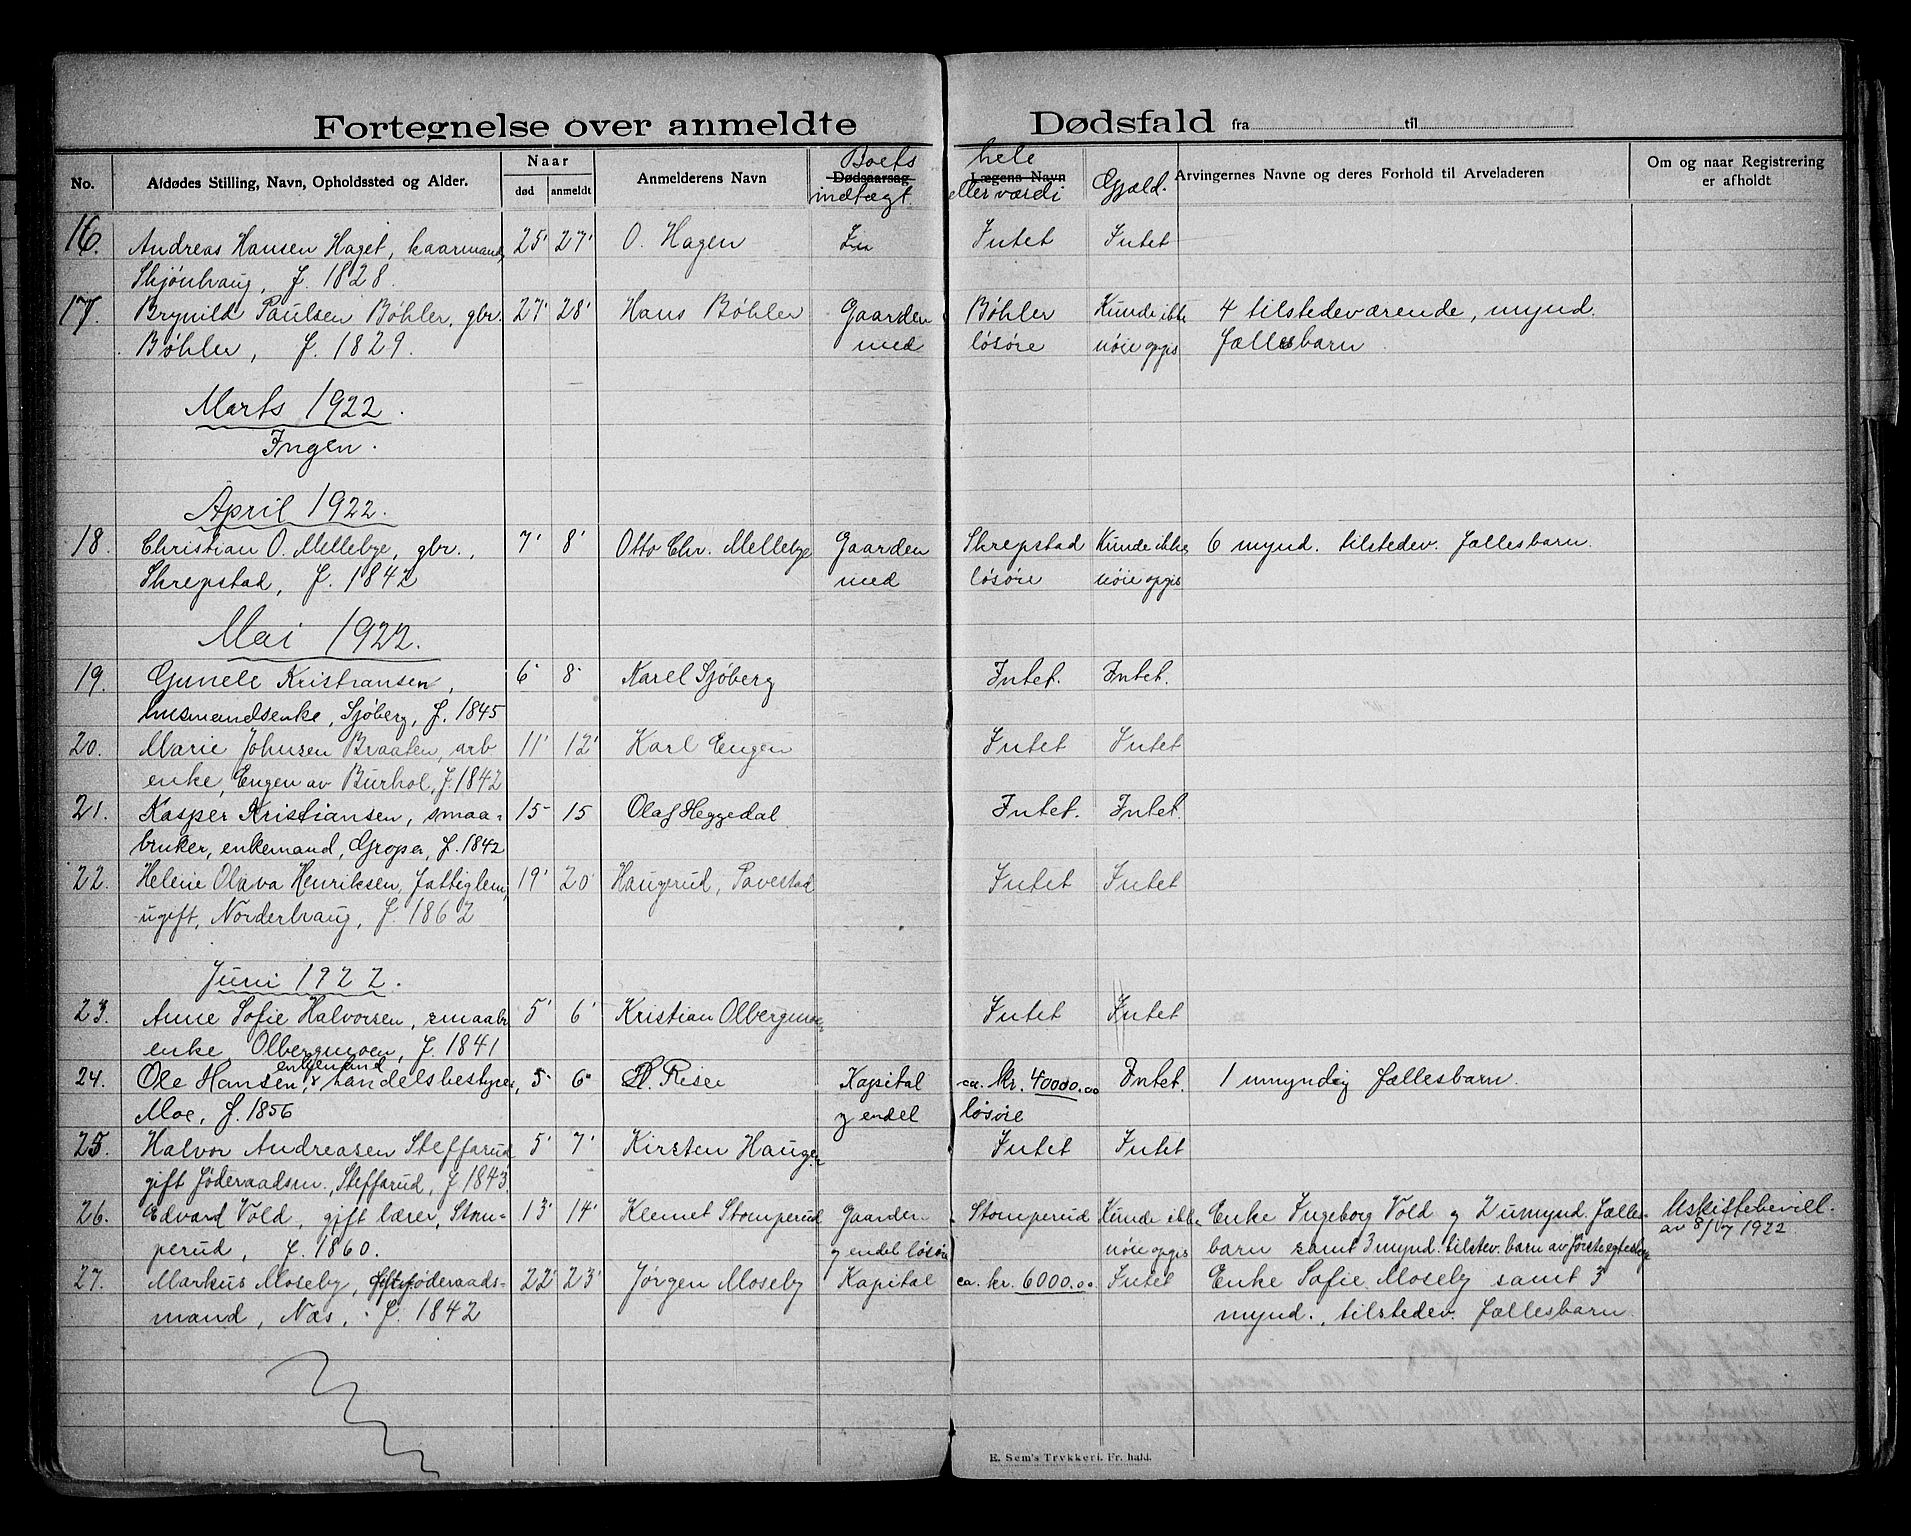 Fortegnelse over anmeldte Dødsfald fra til
No. Afdødes Stilling, Navn, Opholdssted og Alder. Naar død anmeldt Anmelderens Navn Dødsaarsag Lægens Navn Arvingernes Navne og deres Forhold til Arveladeren Om og naar Registrering er afholdt
Boets hele
indtægt eller værdi Gjæld.
16. Andreas Hansen Haget, kaarmand, 25' 27' O. Hagen In Intet Intet
Skjønhaug, f. 1828.
17. Brynild Paulsen Bøhler, gbr. 27' 28' Hans Bøhler Gaarden Bøhler Kunde ikke 4 tilstedeværende, mynd.
Bøhler, f. 1829. med løsøre nøie opgis fællesbarn
Marts 1922.
Ingen.
April 1922.
18. Christian O. Mellebye, gbr., 7' 8' Otto Chr. Mellebye Gaarden Skrepstad Kunde ikke 6 mynd. tilstedev. fællesbarn.
Skrepstad, f. 1842 med løsøre nøie opgis
Mai 1922.
19. Gunele Kristiansen, 6' 8' Karel Sjøberg Intet. Intet.
husmandsenke, Sjøberg, f. 1845
20. Marie Johnsen Braaten, arb. 11' 12' Karl Engen Intet Intet
enke, Engen av Burhol, f. 1842
21. Kasper Kristiansen, smaa- 15- 15 Olaf Heggedal Intet. Intet.
bruker, enkemand, Gropa, f. 1842
22. Helene Olava Henriksen, fattiglem, 19' 20' Haugerud, Tavestad Intet Intet
ugift, Norderhaug, f. 1862
Juni 1922.
23. Anne Sofie Halvorsen, smaabr. 5' 6' Kristian Olbergmoen Intet Intet
enke, Olbergmoen, f. 1841
enkemand
24. Ole Hansen, handelsbestyrer, 5- 6- H. Riser Kapital ca. kr. 40000.00 Intet. 1 umyndig fællesbarn.
Moe, f. 1856 og endel løsøre
25. Halvor Andreasen Steffarud 5' 7' Kirsten Haugen Intet Intet
gift føderaadsm., Steffarud, f. 1843.
26. Edvard Vold, gift lærer, Stom- 13' 14' Klemet Stomperud Gaarden Stomperud Kunde ikke Enke Ingeborg Vold og 2 umynd. fælles- Uskiftebevill.
perud, f. 1860. og endel løsøre nøie opgis barn samt 3 mynd. tilstev. barn av første egteskap av 8/7 1922
27. Markus Moseby, føderaads- 22' 23' Jørgen Moseby Kapital ca. kr. 6000.00 Intet Enke Sofie Moseby samt 3
mand, Næs, f. 1842 mynd., tilstedev. fællesbarn.
E. Sem's Trykkeri. Fr.hald.